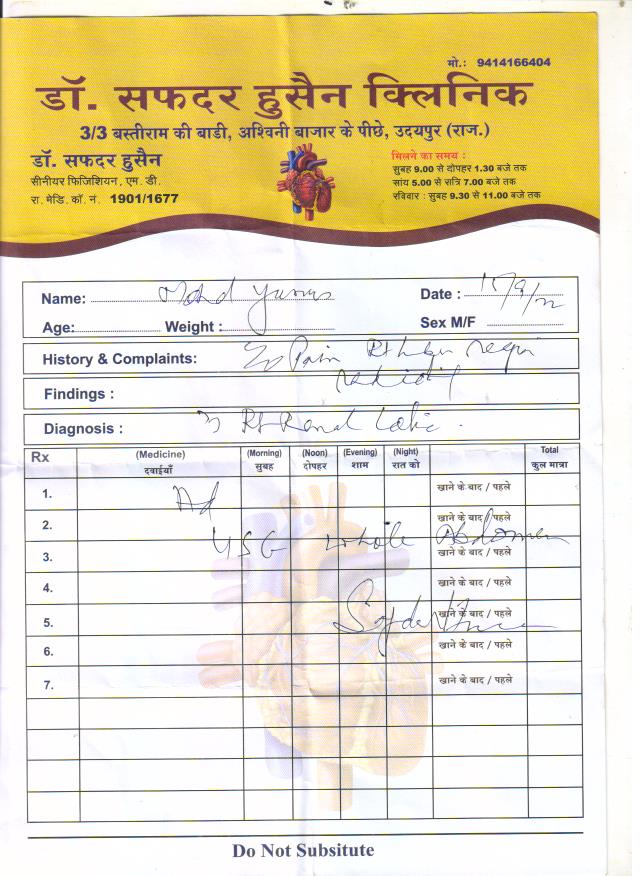 मो.: 9414166404
डॉ. सफदर हुसैन क्लिनिक
3/3 बस्तीराम की बाडी, अश्विनी बाजार के पीछे, उदयपुर (राज.)
डॉ. सफदर हुसैन
सीनीयर फिजिशियन, एम. डी.
रा. मेडि. कॉ. नं. 1901/1677
मिलने का समय :
सुबह 9.00 से दोपहर 1.30 बजे तक
सांय 5.00 से रात्रि 7.00 बजे तक
रविवार : सुबह 9.30 से 11.00 बजे तक
Name: Mohd Yunus Date :
Age: Weight : Sex M/F
History & Complaints: Pain Rt
Findings :
Diagnosis : Rt Renal Colic
Rx (Medicine) (Morning) (Noon) (Evening) (Night) Total
दवाईयाँ सुबह दोपहर शाम रात को कुल मात्रा
1. Ad खाने के बाद / पहले
2. खाने के बाद / पहले
USG whole Abdomen
3. खाने के बाद / पहले
4. खाने के बाद / पहले
5. खाने के बाद / पहले
6. खाने के बाद / पहले
7. खाने के बाद / पहले
Do Not Subsitute